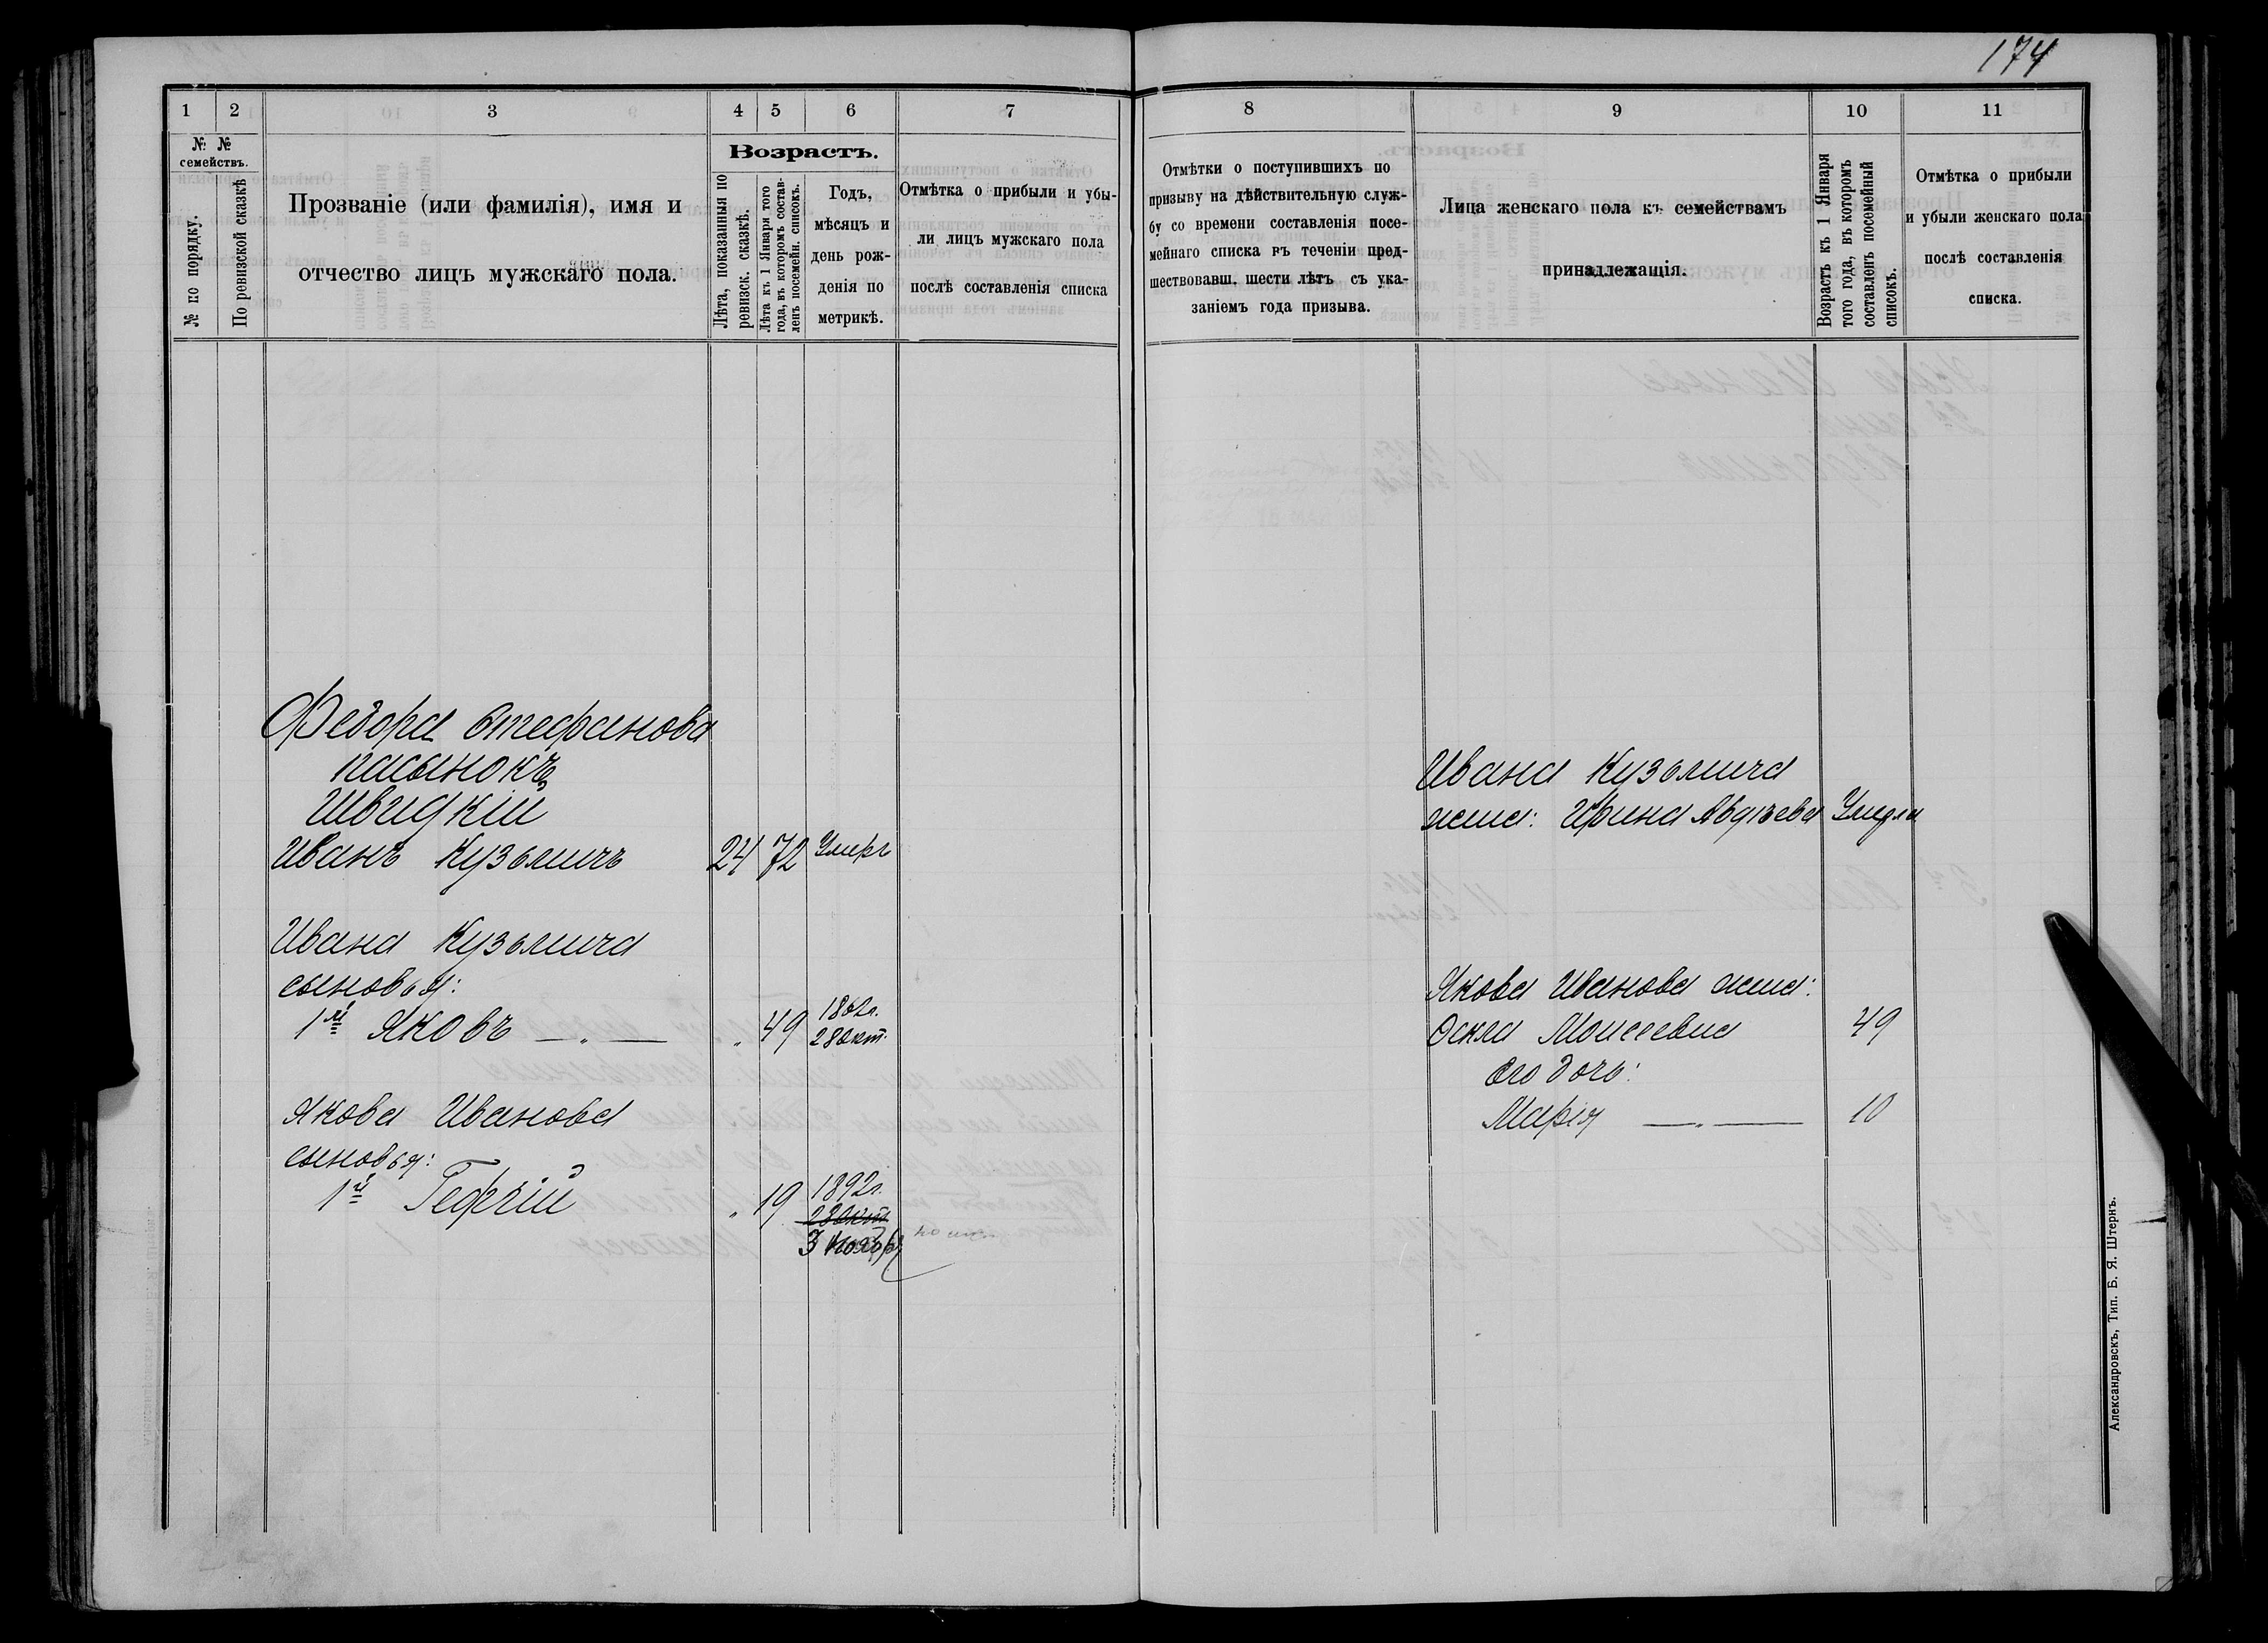 174
1 2 3 4 5 6 7
№ №
семействъ.
№ по порядку.
По ревизской сказкѣ
Прозваніе (или фамилія), имя и
отчество лицъ мужскаго пола.
Возрастъ.
Лѣта, показанныя по
ревизск. сказкѣ.
Лѣта къ 1 Января того
года, въ которомъ состав-
ленъ посемейн. списокъ.
Годъ,
мѣсяцъ и
день рож-
денія по
метрикѣ.
Отмѣтка о прибыли и убы-
ли лицъ мужскаго пола
послѣ составленія списка
Федора Стефанова
пасынокъ
Швидкій
Иванъ Кузьмичъ 24 72 Умеръ
Ивана Кузьмича
сыновья:
1й Яковъ — „ — „ 49 1862г.
28 Окт.
Якова Иванова
сыновья:
1й „ 19 1892г.
28 Окт.
3 Ноября
8 9 10 11
Отмѣтки о поступившихъ по
призыву на дѣйствительную служ-
бу со времени составленія посе-
мейнаго списка въ теченіи пред-
шествовавш. шести лѣтъ съ ука-
заніемъ года призыва.
Лица женскаго пола къ семействамъ
принадлежащія.
Возрастъ къ 1 Января
того года, въ которомъ
составленъ посемейный
списокъ.
Отмѣтка о прибыли
и убыли женскаго пола
послѣ составленія
списка.
Ивана Кузьмича
жена: Ирина Авдѣева Умерла
Якова Иванова жена:
Моисеевна 49
его дочь:
Марія — „ — 10
Александровскъ, Тип. Б. Я. Штернъ.